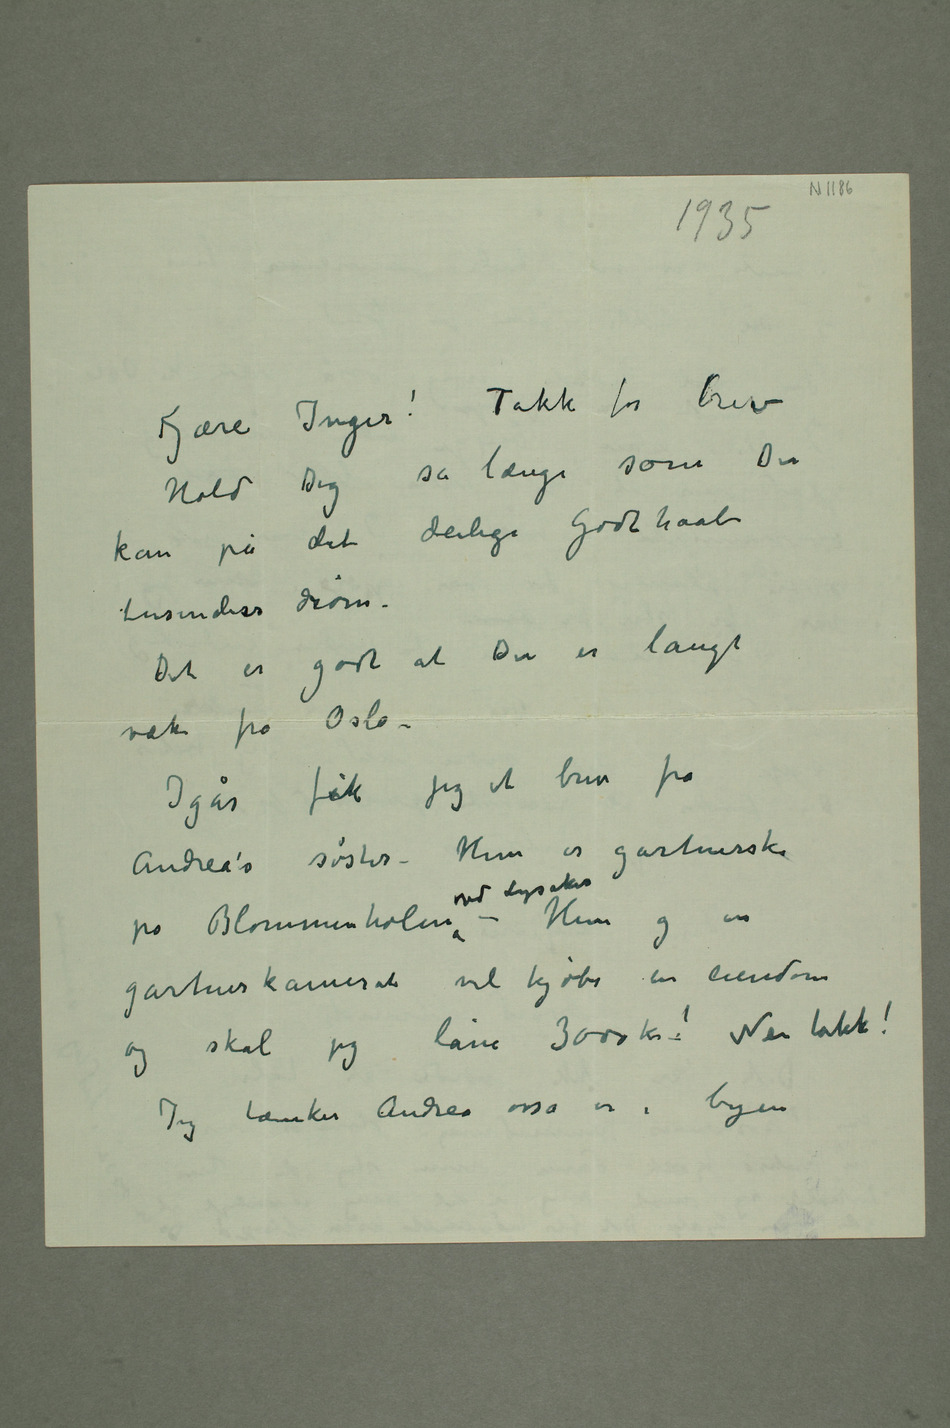 N 1186
1935
Kjære Inger! Takk for brev
Hold Dig så længe som Du
kan på det deilige Godthaab
Det er godt at Du er langt
væk fra Oslo –
Igår fik jeg et brev fra
Andrea's søster – Hun er gartnerske
på Blommenholm ved Lysaker – Hun og en
gartnerkamerat vil kjøbe en eiendom
og skal jeg låne 3000 kr.! Nei takk!
Jeg tænker Andrea osså er i byen